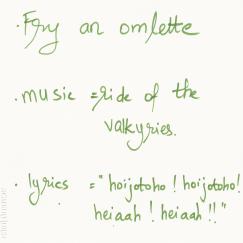 · Fry an omlette
· music = ride of the
valkyries.
· lyrics = "hoijotoho! hoijotoho!
heiaah! heiaah!!"